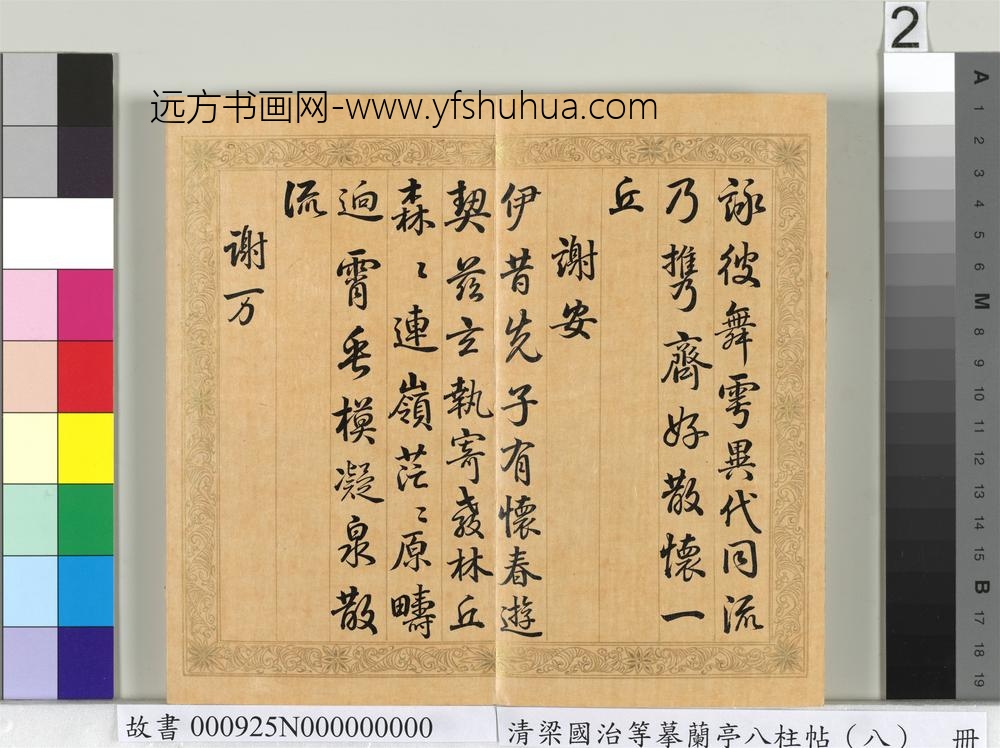 远方书画网-www.yfshuhua.com
2
詠彼舞雩異代同流
乃携齊好散懷一
丘
謝安
伊昔先子有懷春遊
契兹言執寄敖林丘
森〻連嶺茫〻原疇
逈霄垂模凝泉散
流
謝万
A 1 2 3 4 5 6 M 8 9 10 11 12 13 14 15 B 17 18 19
故書 000925N000000000
清梁國治等摹蘭亭八柱帖（八） 冊